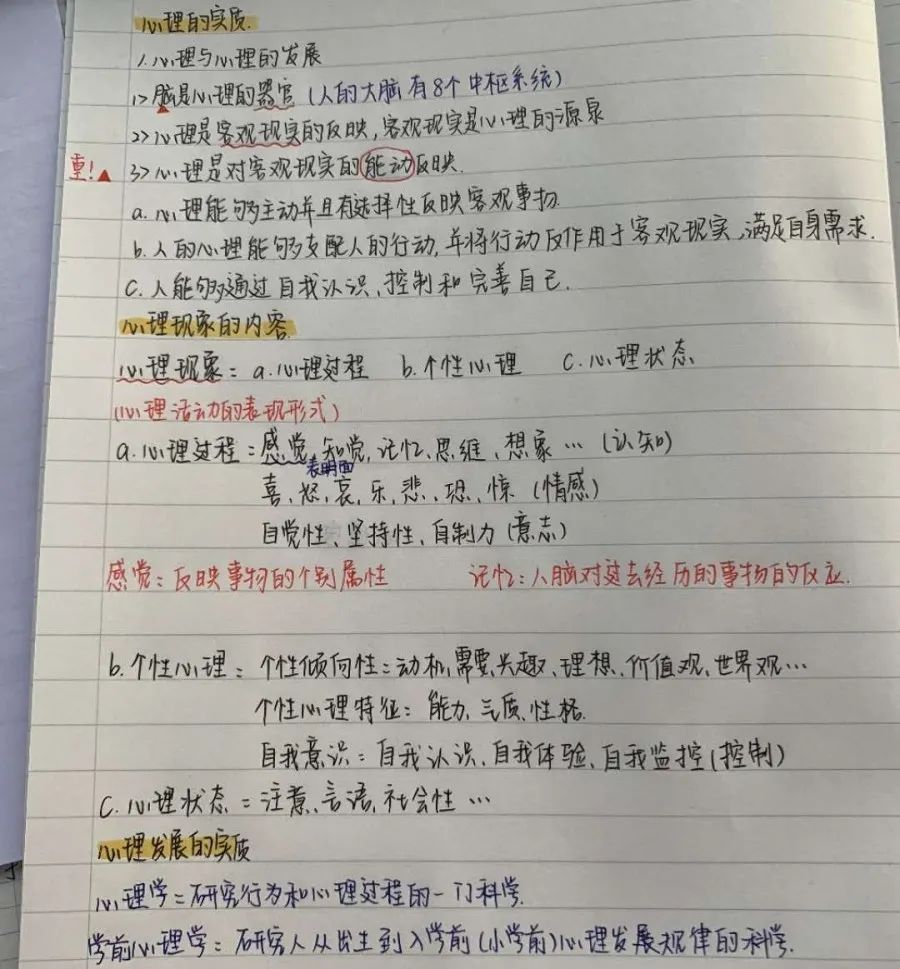 心理的实质.
1.心理与心理的发展
1>脑是心理的器官(人的大脑有8个中枢系统)
2>心理是客观现实的反映,客观现实是心理的源泉
重!▲ 3>心理是对客观现实的能动反映.
a.心理能够主动并且有选择性反映客观事物.
b.人的心理能够支配人的行动,并将行动反作用于客观现实,满足自身需求.
c.人能够通过自我认识、控制和完善自己.
心理现象的内容.
心理现象: a.心理过程 b.个性心理 c.心理状态
(心理活动的表现形式)
a.心理过程:感觉、知觉,记忆、思维、想象…(认知)
表明面
喜、怒、哀、乐、悲、恐、惊(情感)
自觉性、坚持性、自制力(意志)
感觉:反映事物的个别属性 记忆:人脑对过去经历的事物的反应.
b.个性心理: 个性倾向性:动机,需要,兴趣、理想、价值观、世界观…
个性心理特征: 能力,气质,性格.
自我意识:自我认识、自我体验、自我监控(控制)
c.心理状态:注意、言语,社会性…
心理发展的实质
心理学=研究行为和心理过程的一门科学.
学前心理学:研究人从出生到入学前(小学前)心理发展规律的科学.